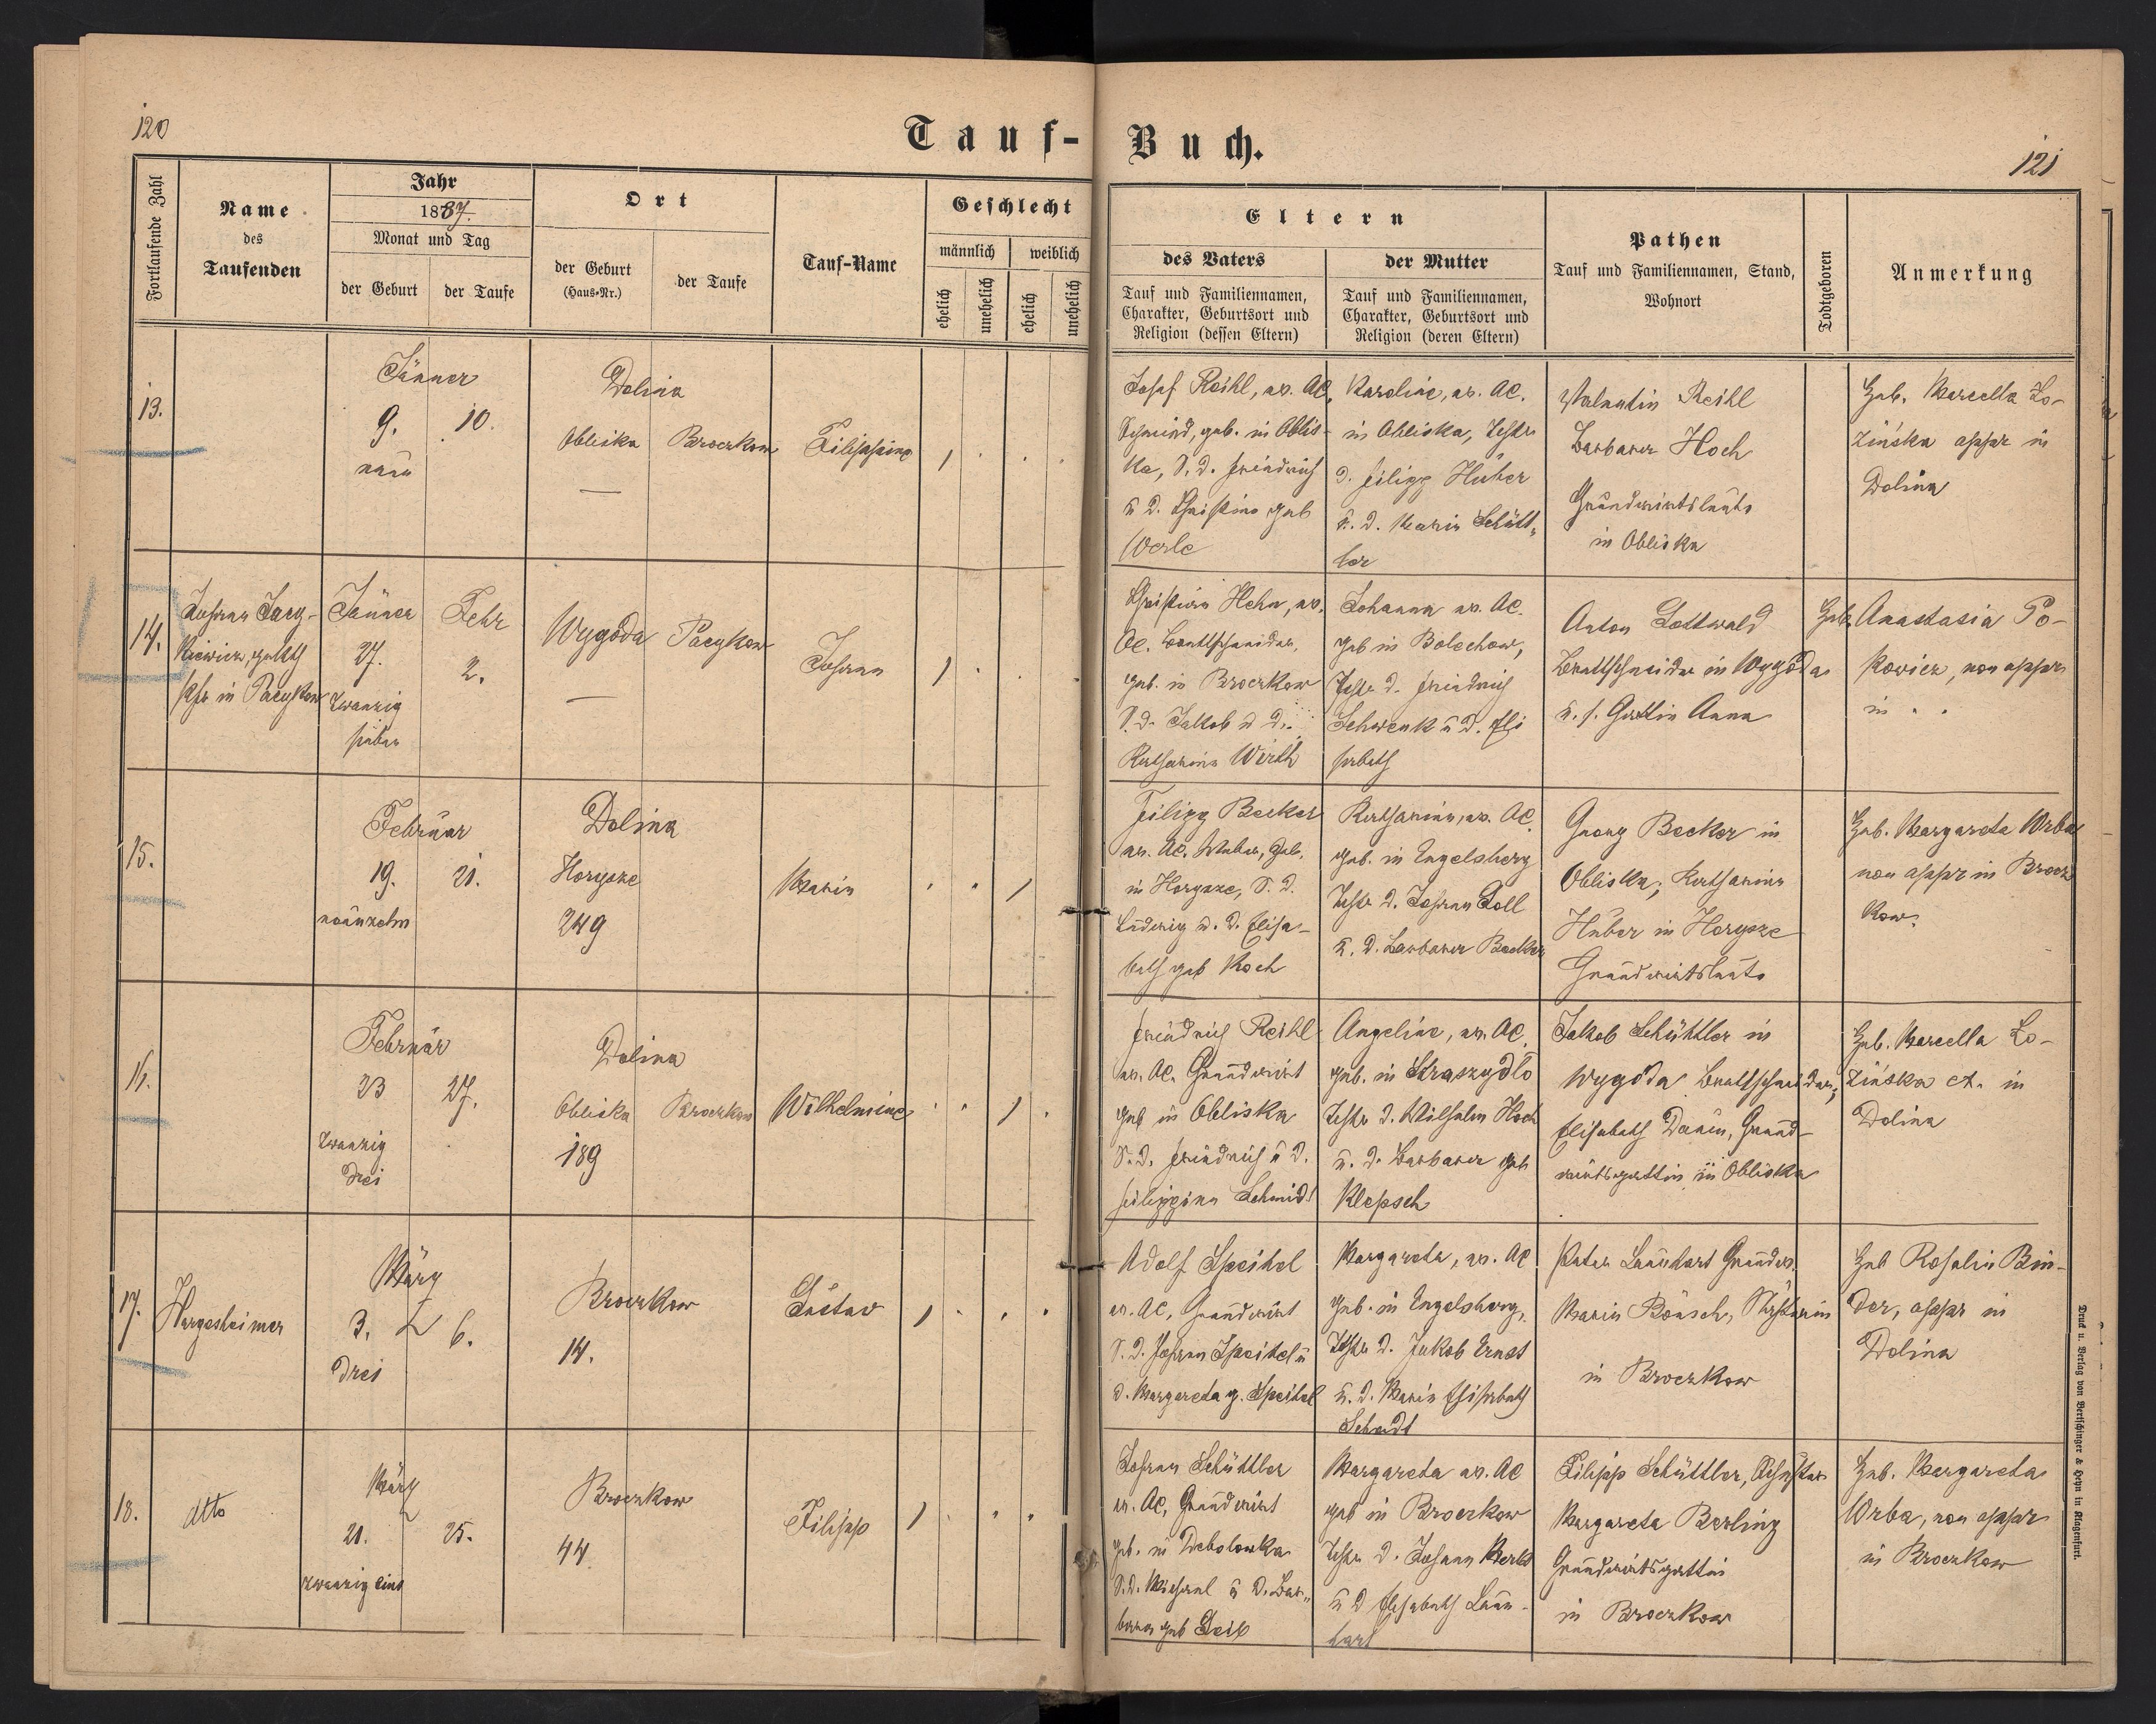 120
Tauf-
Fortlaufende Zahl
Name
des
Taufenden
Jahr
1887.
Monat und Tag
der Geburt
der Taufe
Ort
der Geburt
(Haus-Nr.)
der Taufe
Tauf-Name
Geschlecht
männlich
weiblich
ehelich
unehelich
ehelich
unehelich
13.
Jänner
9. 10.
neun
Dolina
Obliska Broczkow
—
Filippine
14.
Johann
kiewicz,
Pfr in Pacykow
Jänner
27.
zwanzig
sieben
Febr
2.
Wygoda Pacykow
—
Johann
15.
Februar
19. 21.
neunzehn
Dolina
Horysze
249
Maria
16.
Februar
23 27.
zwanzig
drei
Dolina
Obliska Broczkow
189
Wilhelmine
17.
Hargesheimer
März
3. 6.
Drei
Broczkow
14.
Gustav
18.
dtto
März
21. 25.
zwanzig eins
Broczkow
44
Filipp
Buch.
121
Eltern
des Vaters
Tauf und Familiennamen,
Charakter, Geburtsort und
Religion (dessen Eltern)
der Mutter
Tauf und Familiennamen,
Charakter, Geburtsort und
Religion (deren Eltern)
Pathen
Tauf und Familiennamen, Stand,
Wohnort
Todtgeboren
Anmerkung
Josef Reihl, ev. AC,
Schmied, geb. in Oblis-
ka, S. d. Friedrich
u d. Christine geb
Werle
Karoline, ev. AC.
in Obliska, Tochter
d. Filipp Huber
u. d. Maria Schütt-
ler
Valentin Reihl
Barbara Hoch
Grundwirtsleute
in Obliska
Heb. Marcella Lo-
zińska appr in
Dolina
Christian Hehn, ev.
AC. Brettschneider,
geb. in Broczkow
S. d. Jakob u d.
Katharina Wirth
Johanna ev. AC.
geb in Bolechow,
Tochter d. Friedrich
Schwenk u d. Eli
sabeth
Anton Gottwald
Brettschneider in Wygoda
u. s. Gattin Anna
Heb. Anastasia Po-
kowicz, non appr
in
Filipp Becker
ev. AC. Weber, geb.
in Horysze, S. d.
Ludwig u. d. Elisa-
beth geb Koch
Katharina, ev. AC.
geb. in Engelsberg
Tochter d. Johann Goll
u. d. Barbara Becker
Georg Becker in
Obliska; Katharina
Huber in Horysze
Grundwirtsleute
Heb. Margareta Wrba
non appr in Brocz
kow.
Friedrich Reihl
ev. AC. Grundwirt
geb in Obliska
S. d. Friedrich u d.
Filippina Schmidt
Angeline, ev. AC.
geb. in Straszydło
Tochter d. Wilhelm Hoch
u. d. Barbara geb
Klepsch
Jakob Schüttler in
Wygoda Brettschneider,
Elisabeth Daum, Grund-
wirtsgattin in Obliska
Heb. Marcella Lo-
zińska et. in
Dolina
Adolf Speitel
ev. AC, Grundwirt
S. d. Johann Speitel u
d. Margareta g. Speitel
Margareta, ev. AC
geb. in Engelsberg,
Tochter d. Jakob Ernst
u. d. Maria Elisabeth
Schadt
Peter Launhart Grundw.
Maria Bönsch,
in Broczkow
Heb Rosalia Bin-
der, appr in
Dolina
Johann Schüttler
ev. AC, Grundwirt
geb. in Debolowka
S. d. Michael u d. Bar-
bara geb Geib
Margareta ev. AC
geb in Broczkow
Tochter d. Johann
u d Elisabeth Laun-
hart
Filipp Schüttler, Schuster
Margareta Berling
Grundwirtsgattin
in Broczkow
Heb. Margareta
Wrba, non appr
in Broczkow
Druck u. Verlag von Bertschinger & Heyn in Klagenfurt.